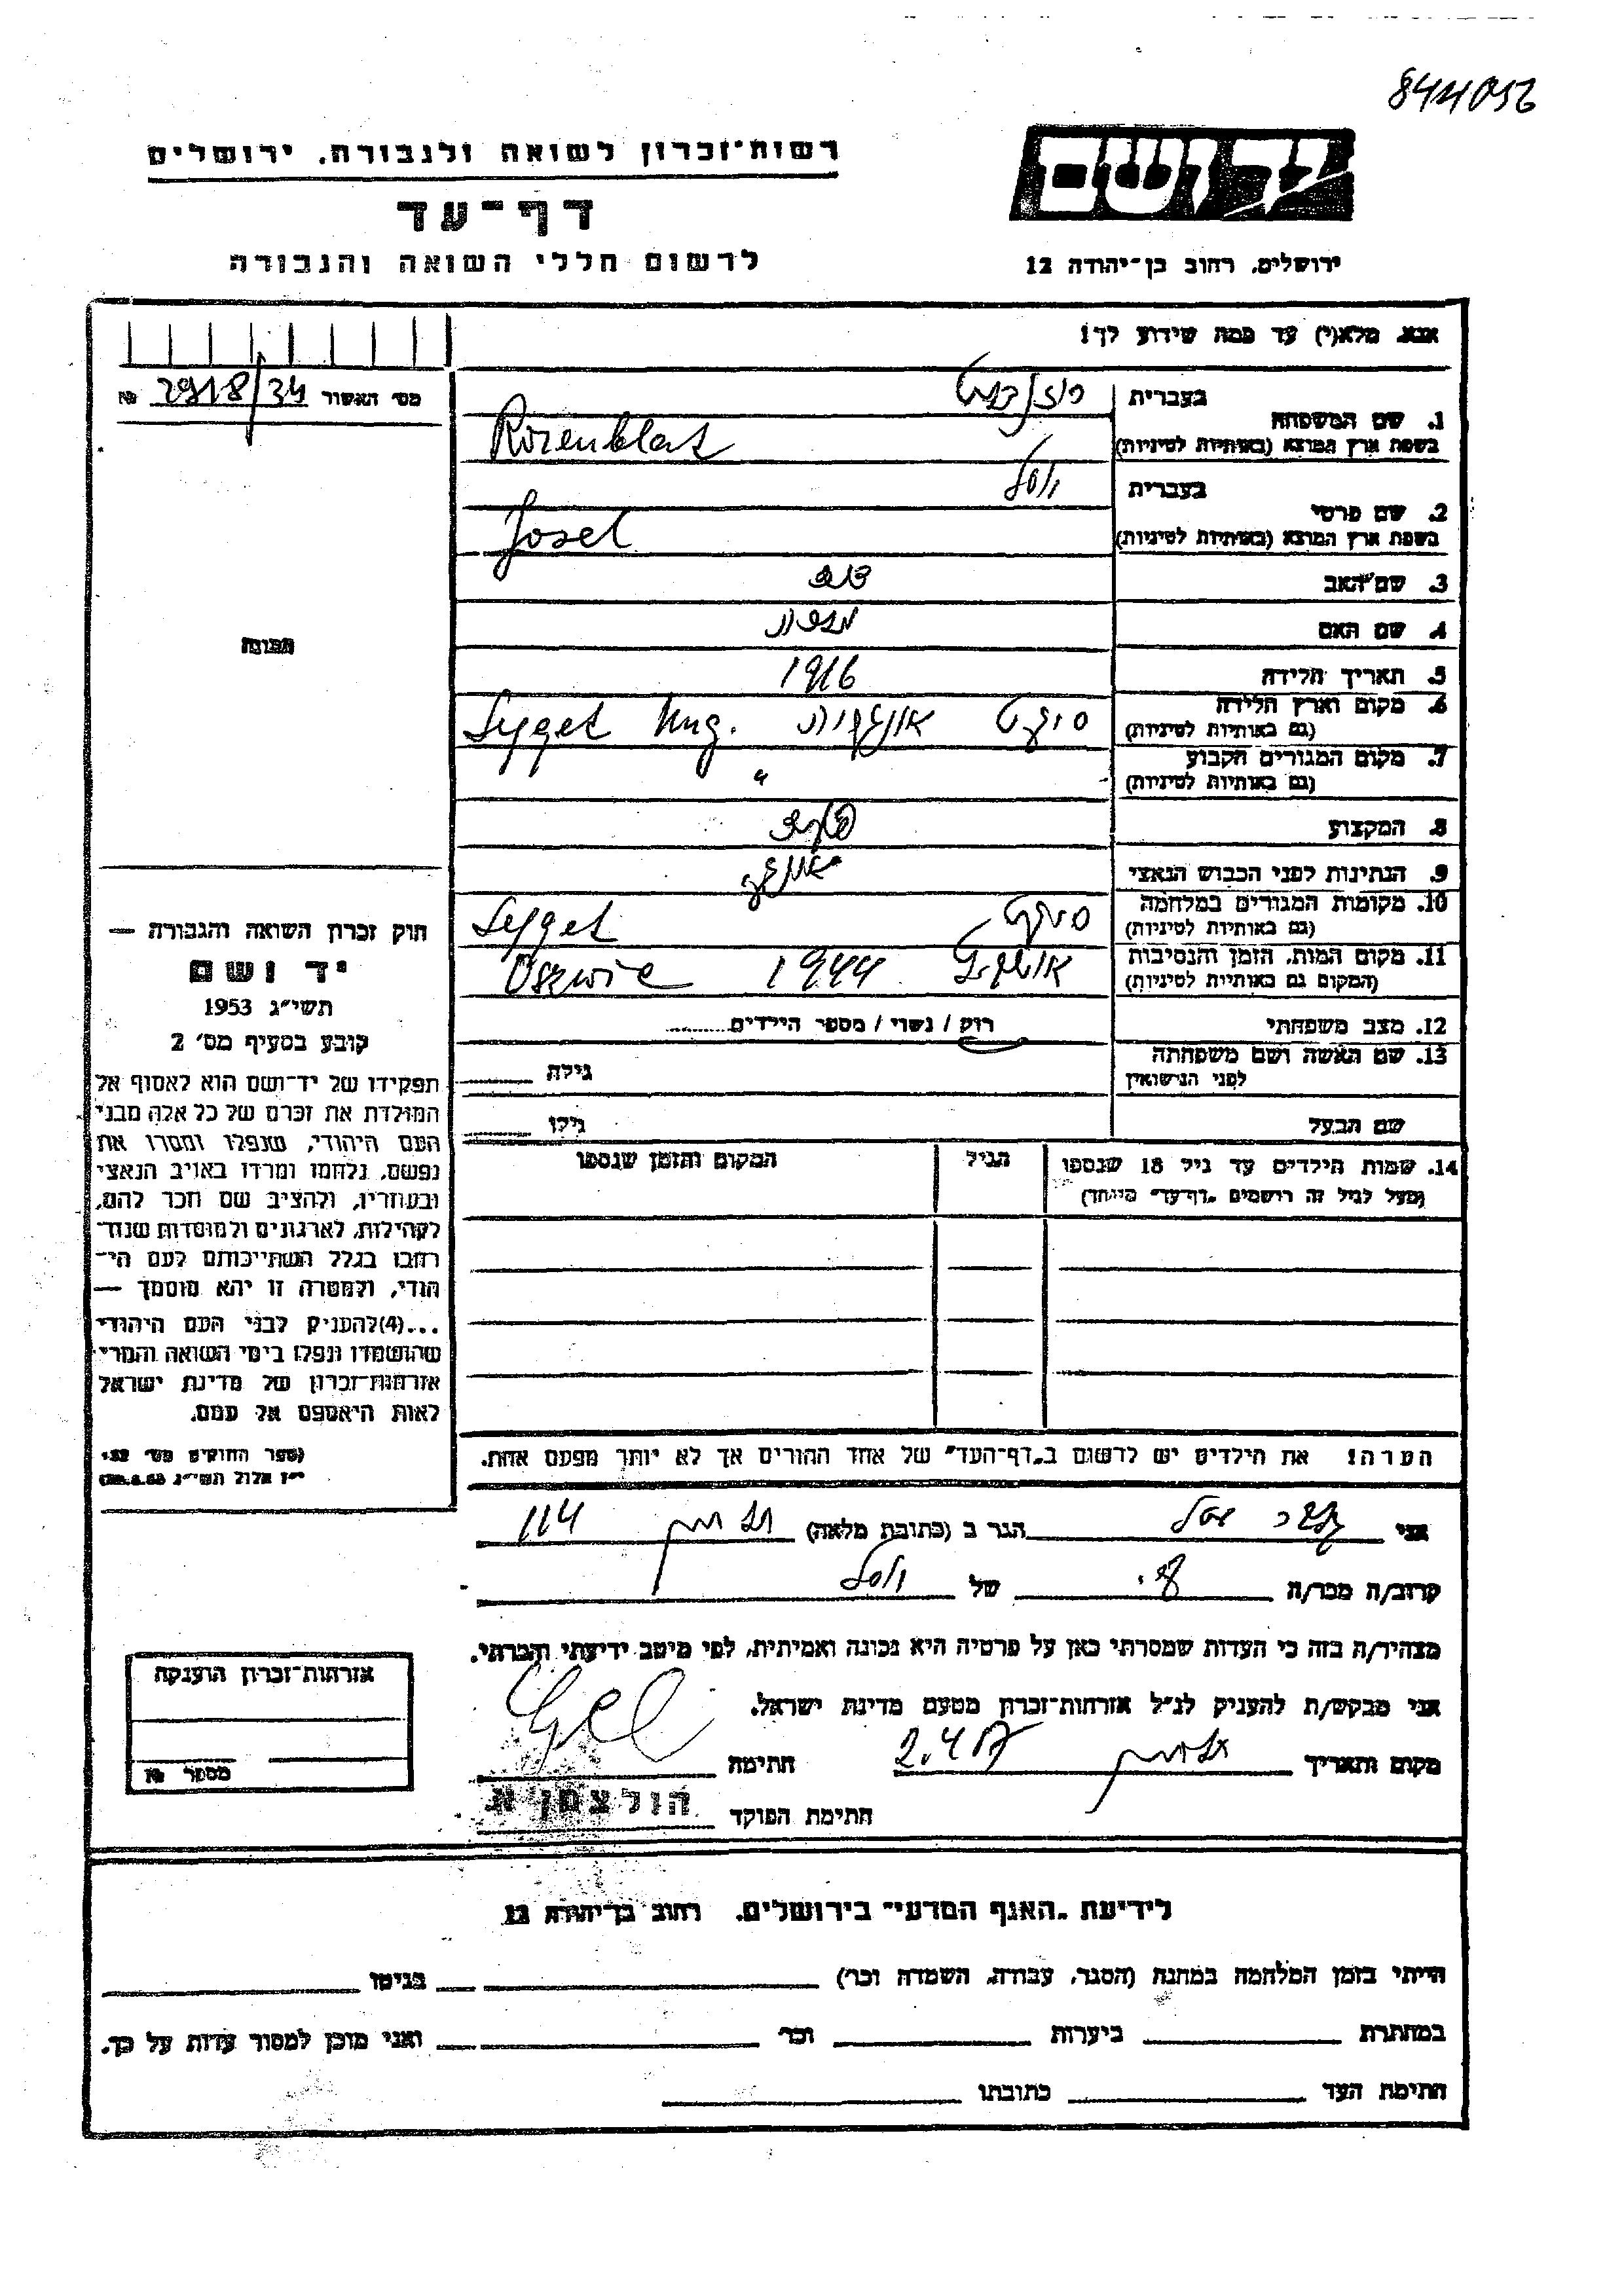 8441056
יד ושם
רשות-זכרון לשואה ולגבורה, ירושלים
דף-עד
ירושלים, רחוב בן-יהודה 12
לרשום חללי השואה והגבורה
אנא, מלא(י) עד כמה שידוע לך!
מס׳ האשור 2918/34 №
1. שם המשפחה
בעברית
בשפת ארץ המוצא (באותיות לטיניות) Rozenblat
2. שם פרטי
בעברית יוסל
בשפת ארץ המוצא (באותיות לטיניות) Josel
3. שם האב
4. שם האם
5. תאריך הלידה 1916
6. מקום וארץ הלידה סיגט Syget Ung.
(גם באותיות לטיניות)
7. מקום המגורים הקבוע "
(גם באותיות לטיניות)
8. המקצוע
9. הנתינות לפני הכבוש הנאצי
10. מקומות המגורים במלחמה סיגט Syget
(גם באותיות לטיניות)
11. מקום המות, הזמן והנסיבות 1944
(המקום גם באותיות לטיניות)
12. מצב משפחתי רווק / נשוי / מספר הילדים........
13. שם האשה ושם משפחתה גילה
לפני הנישואין
שם הבעל גילו
14. שמות הילדים עד גיל 18 שנספו הגיל המקום והזמן שנספו
(מעל לגיל זה רושמים „דף-עד" מיוחד)
תמונה
חוק זכרון השואה והגבורה —
יד ושם
תשי״ג 1953
קובע בסעיף מס׳ 2
תפקידו של יד-ושם הוא לאסוף אל
המולדת את זכרם של כל אלה מבני
העם היהודי, שנפלו ומסרו את
נפשם, נלחמו ומרדו באויב הנאצי
ובעוזריו, ולהציב שם וזכר להם,
לקהילות, לארגונים ולמוסדות שנח-
רבו בגלל השתייכותם לעם הי-
הודי, ולמטרה זו יהא מוסמך —
...(4)להעניק לבני העם היהודי
שהושמדו ונפלו בימי השואה והמרי
אזרחות-זכרון של מדינת ישראל
לאות היאספם אל עמם.
(ספר החוקים מס׳ 132,
י״ז אלול תשי״ג 28.8.53)
הערה! את הילדים יש לרשום ב„דף-העד" של אחד ההורים אך לא יותר מפעם אחת.
אני הגר ב (כתובת מלאה) 114
קרוב/ה מכר/ה של יוסל
מצהיר/ה בזה כי העדות שמסרתי כאן על פרטיה היא נכונה ואמיתית, לפי מיטב ידיעתי והכרתי.
אני מבקש/ת להעניק לנ״ל אזרחות-זכרון מטעם מדינת ישראל.
מקום ותאריך 2.4.57 חתימה
חתימת הפוקד הולצמן א.
אזרחות-זכרון הוענקה
מספר №
לידיעת „האגף המדעי" בירושלים, רחוב בן-יהודה 12
הייתי בזמן המלחמה במחנה (הסגר, עבודה, השמדה וכו׳) בגיטו
במחתרת ביערות וכו׳ ואני מוכן למסור עדות על כך.
חתימת העד כתובתו